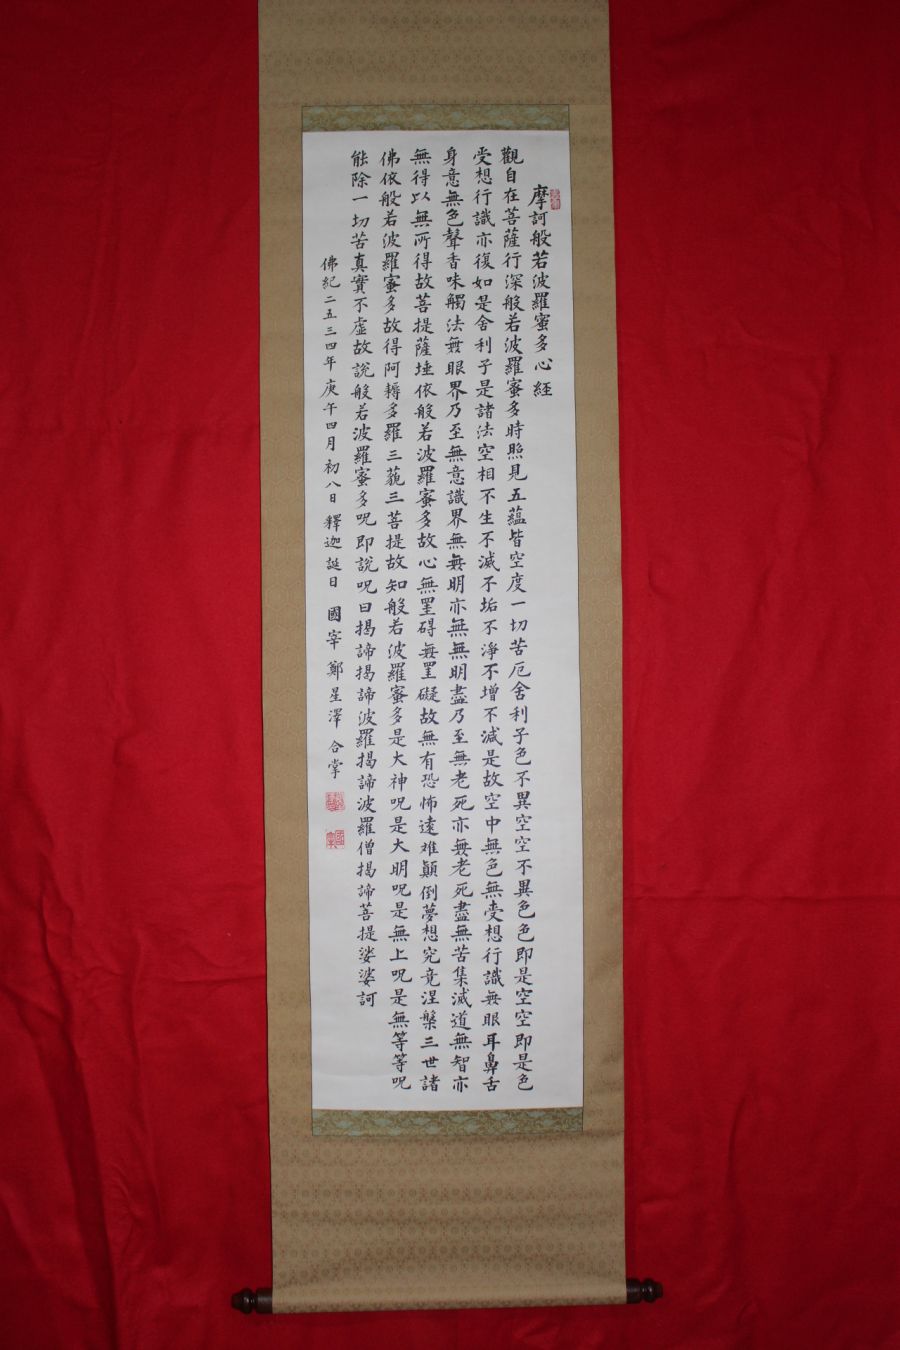 摩訶般若波羅蜜多心經
觀自在菩薩行深般若波羅蜜多時照見五蘊皆空度一切苦厄舍利子色不異空空不異色色即是空空即是色
受想行識亦復如是舍利子是諸法空相不生不滅不垢不淨不增不減是故空中無色無受想行識無眼耳鼻舌
身意無色聲香味觸法無眼界乃至無意識界無無明亦無無明盡乃至無老死亦無老死盡無苦集滅道無智亦
無得以無所得故菩提薩埵依般若波羅蜜多故心無罣碍無罣礙故無有恐怖遠难顛倒夢想究竟涅槃三世諸
佛依般若波羅蜜多故得阿耨多羅三藐三菩提故知般若波羅蜜多是大神呪是大明呪是無上呪是無等等呪
能除一切苦真實不虛故說般若波羅蜜多呪即說呪曰揭諦揭諦波羅揭諦波羅僧揭諦菩提娑婆訶
佛紀二五三四年庚午四月初八日釋迦誕日國宰鄭星澤合掌